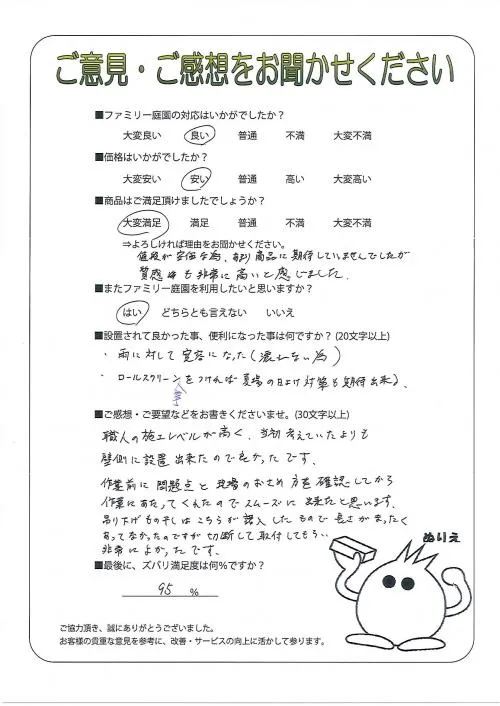 ご意見・ご感想をお聞かせください
■ファミリー庭園の対応はいかがでしたか？
大変良い 良い 普通 不満 大変不満
■価格はいかがでしたか？
大変安い 安い 普通 高い 大変高い
■商品はご満足頂けましたでしょうか？
大変満足 満足 普通 不満 大変不満
⇒よろしければ理由をお聞かせください。
値段が安価な為、あまり商品に期待していませんでしたが
質感等も非常に高いと感じました。
■またファミリー庭園を利用したいと思いますか？
はい どちらとも言えない いいえ
■設置されて良かった事、便利になった事は何ですか？（20文字以上）
・雨に対して寛容になった（濡れない為）
・ロールスクリーン等をつければ夏場の日よけ対策も期待出来る。
■ご感想・ご要望などをお書きくださいませ。（30文字以上）
職人の施工レベルが高く、当初考えていたよりも
壁側に設置出来たので良かったです。
作業前に問題点と現場のおさめ方を確認してから
作業にあたってくれたのでスムーズに出来たと思います。
吊り下げもの干しはこちらが購入したもので長さがまったく
あってなかったのですが切断して取付してもらい
非常によかったです。
■最後に、ズバリ満足度は何％ですか？
95 ％
ぬりえ
ご協力頂き、誠にありがとうございました。
お客様の貴重な意見を参考に、改善・サービスの向上に活かして参ります。